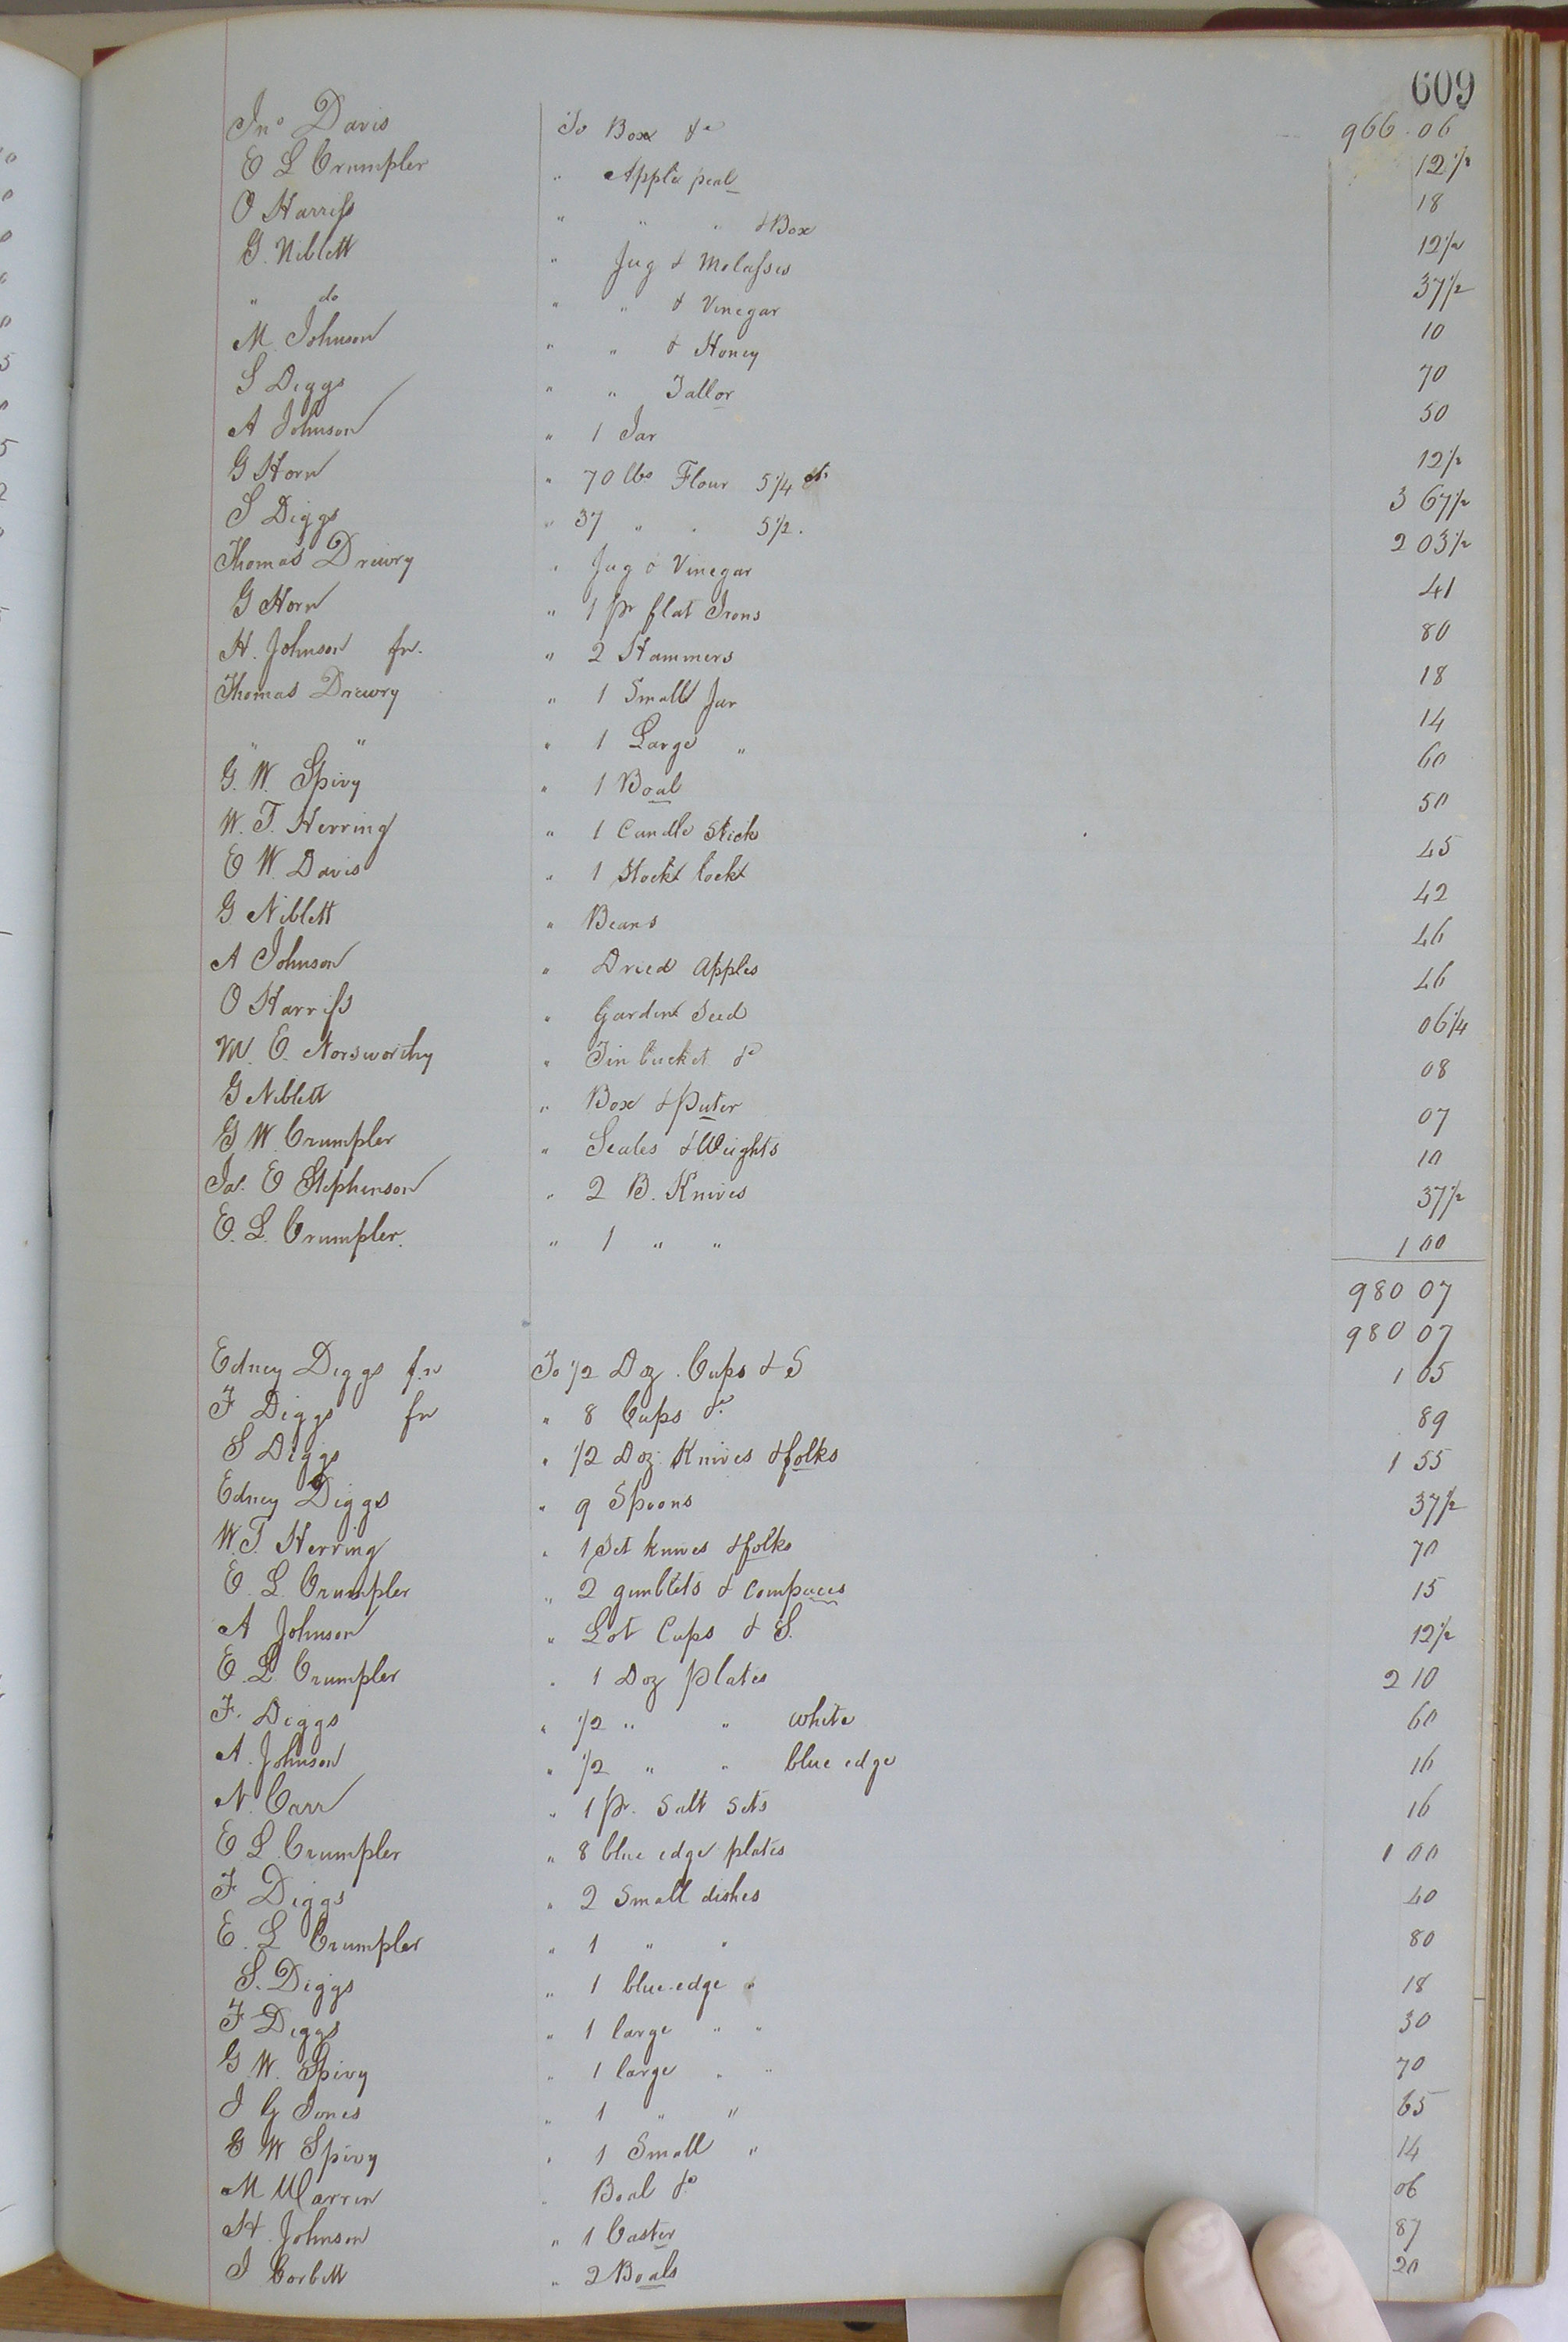 609
966.06
Jno Davis To Box &c 12 1/2
E L Crumpler " Apple peal 18
O Harriss " " " & Box 12 1/2
G. Niblett " Jug & Molasses 37 1/2
" do " " & Vinegar 10
M. Johnson " " & Honey 70
S Diggs " " Tallor 50
A Johnson " 1 Jar 12 1/2
G Horn " 70 lbs Flour 5 1/4 cts 3 67 1/2
S Diggs " 37 " " 5 1/2 . 2 03 1/2
Thomas Drewry " Jug & Vinegar 41
G Horn " 1 pr flat Irons 80
H. Johnson fn. " 2 Hammers 18
Thomas Drewry " 1 Small Jar 14
" " " 1 Large " 60
G. W. Spivy " 1 Boal 50
W. T. Herring " 1 Candle Stick 45
E W. Davis " 1 Stock lock 42
G Niblett " Beans 46
A Johnson " Dried Apples 46
O Harriss " Garden Seed 06 1/4
W. E. Norsworthy " Tin bucket &c 08
G Niblett " Box & Puter 07
G W. Crumpler " Scales & Weights 10
Ja. E Stephenson " 2 B. Knives 37 1/2
E. L. Crumpler. " 1 " " 1 00
980 07
980 07
Edney Diggs fn To 1/2 Doz. Cups & S 1 05
F Diggs fn " 8 Cups &c 89
S Diggs " 1/2 Doz Knives & folks 1 55
Edney Diggs " 9 Spoons 37 1/2
W. T. Herring " 1 Set knives & folks 70
E. L. Crumpler " 2 gimblets & compaces 15
A Johnson " Lot Cups & S. 12 1/2
E. L. Crumpler " 1 Doz Plates 2 10
F. Diggs " 1/2 " " white 60
A. Johnson " 1/2 " " blue edge 16
N. Carr " 1 pr. Salt Sets 16
E L. Crumpler " 8 blue edge plates 1 00
F Diggs " 2 Small dishes 40
E. L Crumpler " 1 " " 80
S. Diggs " 1 blue edge " 18
F Diggs " 1 large " " 30
G. W. Spivy " 1 large " " 70
J G Jones " 1 " " 65
G W Spivy " 1 Small " 14
M Warren " Boal &c 06
H. Johnson " 1 Caster 87
J Corbett " 2 Boals 20